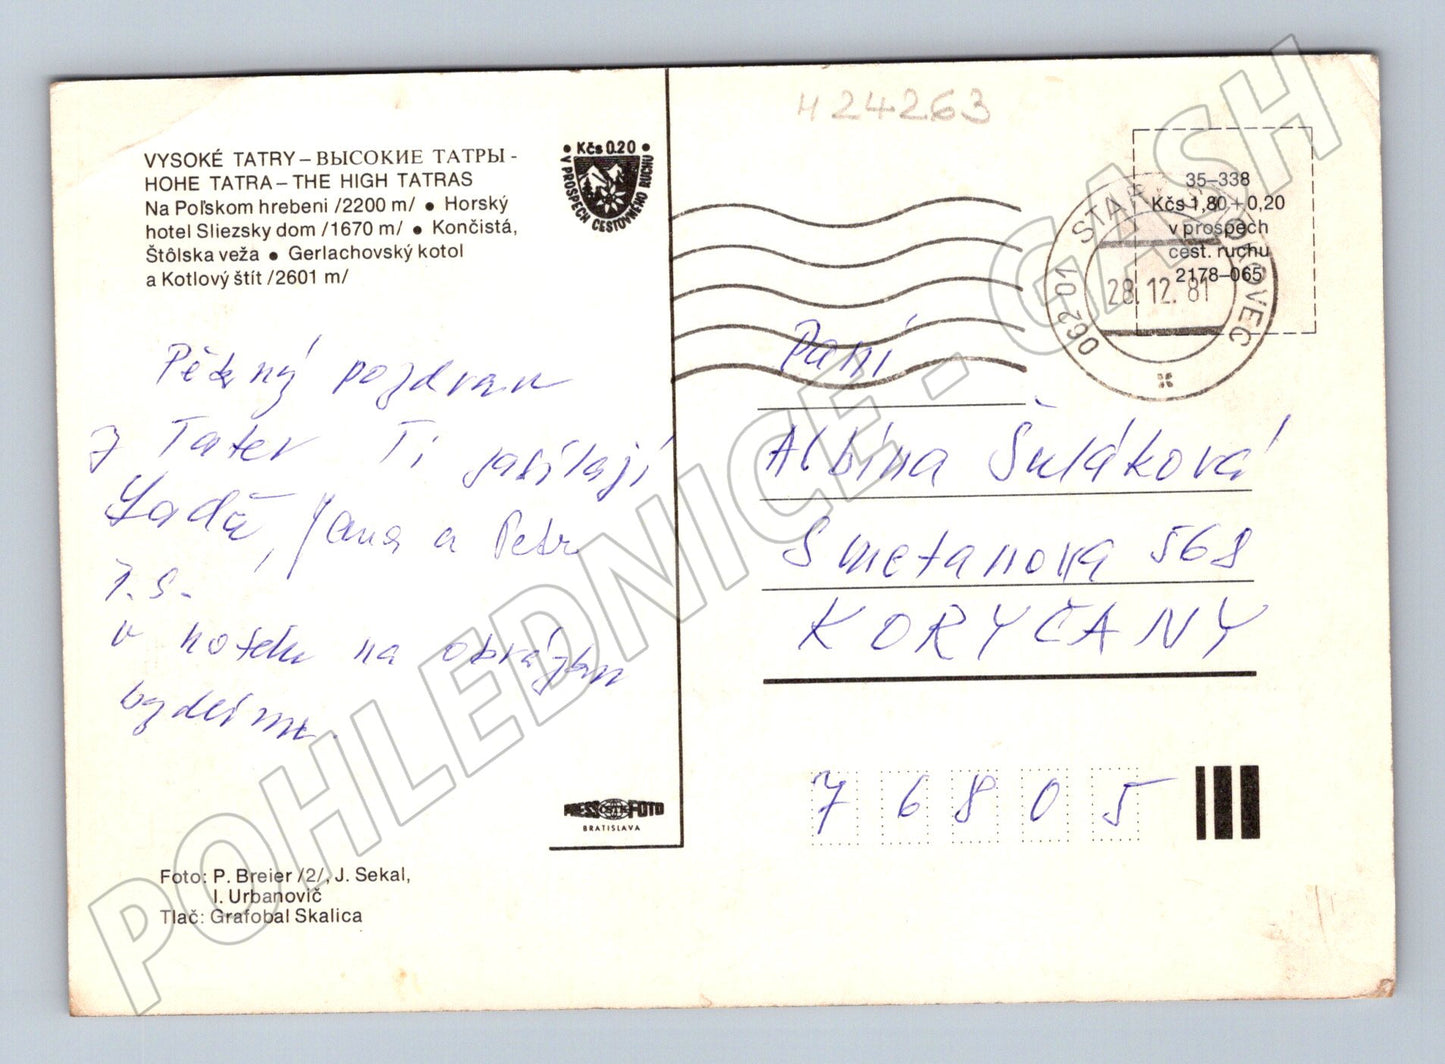 H24263
VYSOKÉ TATRY – ВЫСОКИЕ ТАТРЫ -
HOHE TATRA – THE HIGH TATRAS
Na Poľskom hrebeni /2200 m/ • Horský
hotel Sliezsky dom /1670 m/ • Končistá,
Štôlska veža • Gerlachovský kotol
a Kotlový štít /2601 m/
• Kčs 0.20 •
V PROSPECH CESTOVNÉHO RUCHU
Pěkný pozdrav
z Tater Ti zasílají
Laďa, Jana a Petr
P.S.
v hotelu na obrázku
bydlíme.
PRESSFOTO
BRATISLAVA
Foto: P. Breier /2/, J. Sekal,
I. Urbanovič
Tlač: Grafobal Skalica
35–338
Kčs 1,80 + 0,20
v prospech
cest. ruchu
2178–065
062 01 STARÝ SMOKOVEC
28.12.81
Paní
Albína Šuláková
Smetanova 568
KORYČANY
76805
POHLEDNICE - GASH